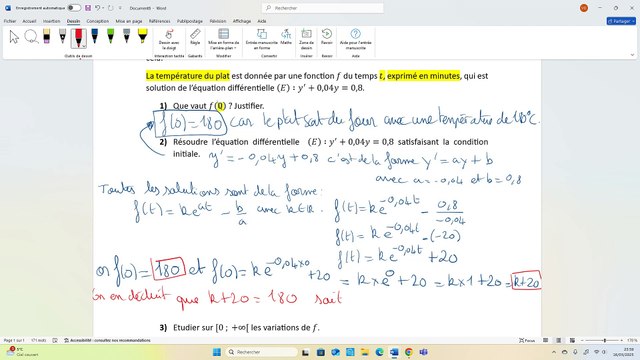 Enregistrement automatique
Document8 - Word
Rechercher
Fichier Accueil Insertion Dessin Conception Mise en page Références Publipostage Révision Affichage Aide
Commentaires Partager
Dessin avec le doigt
Règle
Format de l'arrière-plan
Entrée manuscrite en forme
Maths
Zone de dessin
Rejouer
Aide pour l'entrée manuscrite
Outils de dessin
La température du plat est donnée par une fonction f du temps t, exprimé en minutes, qui est
solution de l'équation différentielle (E) : y' + 0,04y = 0,8.
1) Que vaut f(0) ? Justifier.
f(0) = 180 car le plat sort du four avec une température de 180°C.
2) Résoudre l'équation différentielle (E) : y' + 0,04y = 0,8 satisfaisant la condition
initiale.
y' = -0,04y + 0,8 c'est de la forme y' = ay + b
avec a = -0,04 et b = 0,8
Toutes les solutions sont de la forme :
f(t) = k e^{at} - b/a avec k ∈ ℝ.
f(t) = k e^{-0,04t} - 0,8/-0,04
f(t) = k e^{-0,04t} - (-20)
f(t) = k e^{-0,04t} + 20
or f(0) = 180 et f(0) = k e^{-0,04×0} + 20 = k × e^0 + 20 = k × 1 + 20 = k + 20
on en déduit que k + 20 = 180 soit
3) Etudier sur [0 ; +∞[ les variations de f.
Page 1 sur 1
171 mots
Français (France)
Accessibilité : consultez nos recommandations
5°C
Ciel couvert
Rechercher